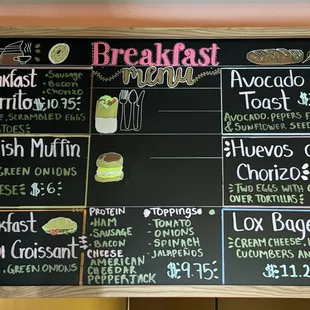 Breakfast
menu
kfast
rrito $10.75
Sausage
Bacon
Chorizo
E, SCRAMBLED EGGS
ATOES
ish Muffin
GREEN ONIONS
ESE $6
kfast
Croissant
, GREEN ONIONS
PROTEIN
HAM
SAUSAGE
BACON
CHEESE
AMERICAN
CHEDDAR
PEPPERJACK
TOPPINGS
TOMATO
ONIONS
SPINACH
JALAPEÑOS
$9.75
Avocado
Toast $
AVOCADO, PEPERS, F
& SUNFLOWER SEED
Huevos c
Chorizo
TWO EGGS WITH C
OVER TORTILLAS
Lox Bage
CREAM CHEESE,
CUCUMBERS AN
$11.2